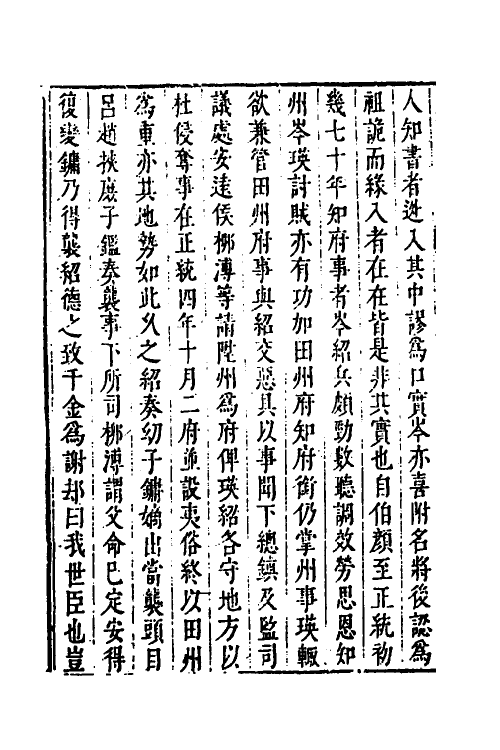 人知書者迯入其中謬爲口實岑亦喜附名將後認爲
祖詭而緣入者在在皆是非其實也自伯顏至正統初
幾七十年知府事者岑紹兵頗勁數聽調效勞思恩知
州岑瑛討賊亦有功加田州府知府銜仍掌州事瑛輙
欲兼管田州府事與紹交惡具以事聞下總鎮及監司
議處安遠侯栁溥等請陞州爲府俾瑛紹各守地方以
杜侵奪事在正統四年十月二府並設夷俗終以田州
爲重亦其地勢如此久之紹奏幼子鏞嫡出當襲頭目
呂趙挾庻子鑑奏襲事下所司栁溥謂父命已定安得
復變鏞乃得襲紹德之致千金爲謝却曰我世臣也豈